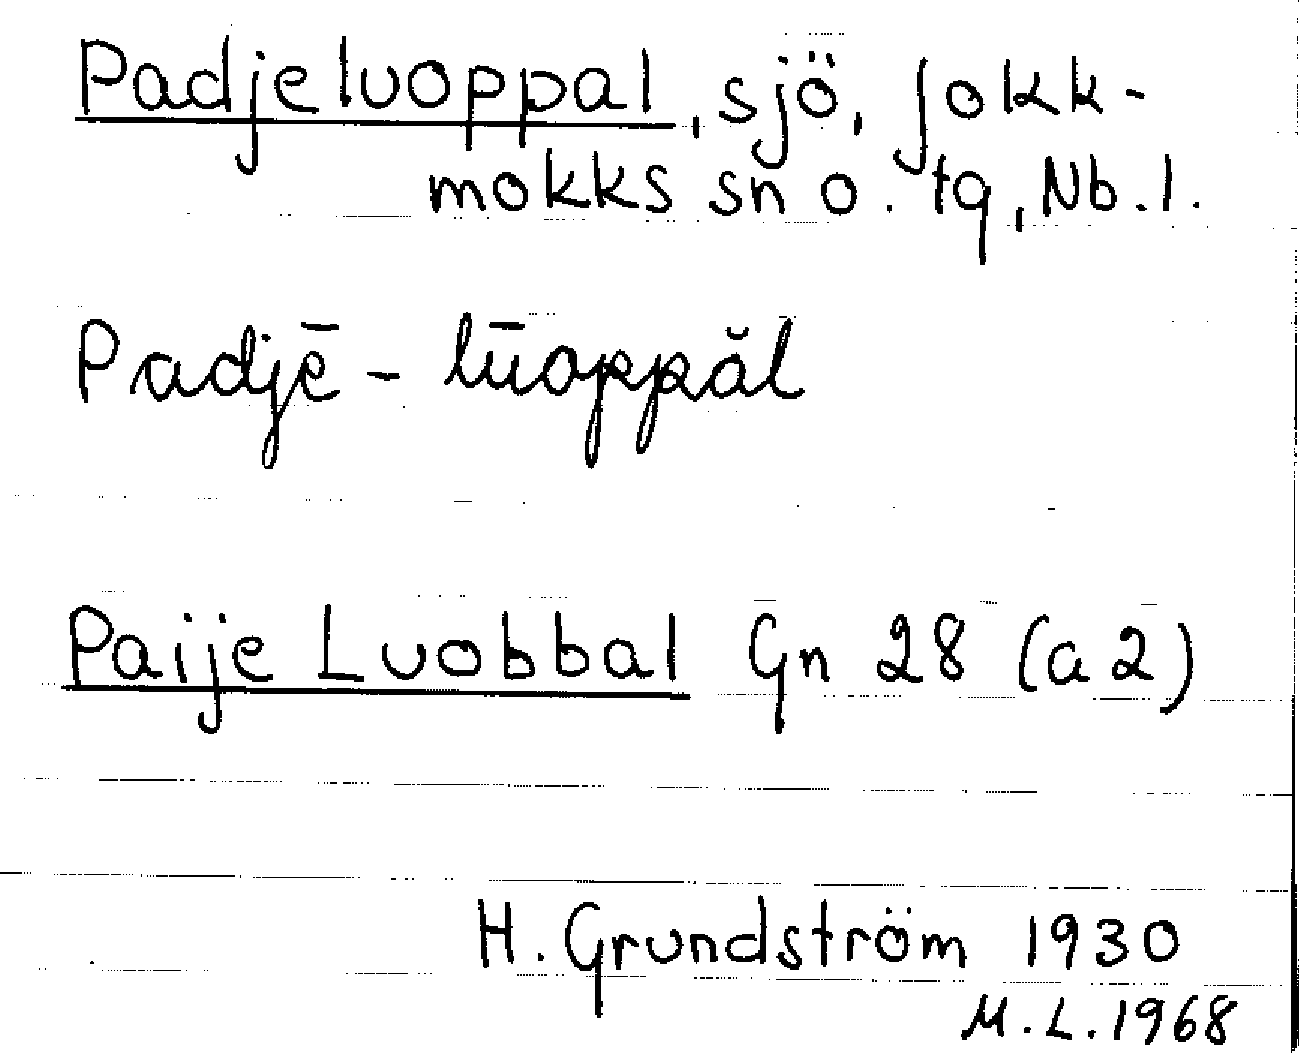 Padjeluoppal, sjö, Jokk-
mokks sn o. tg, Nb. l.
Padjē - lūoppăl
Paije Luobbal Gn 28 (a 2)
H. Grundström 1930
M. L. 1968